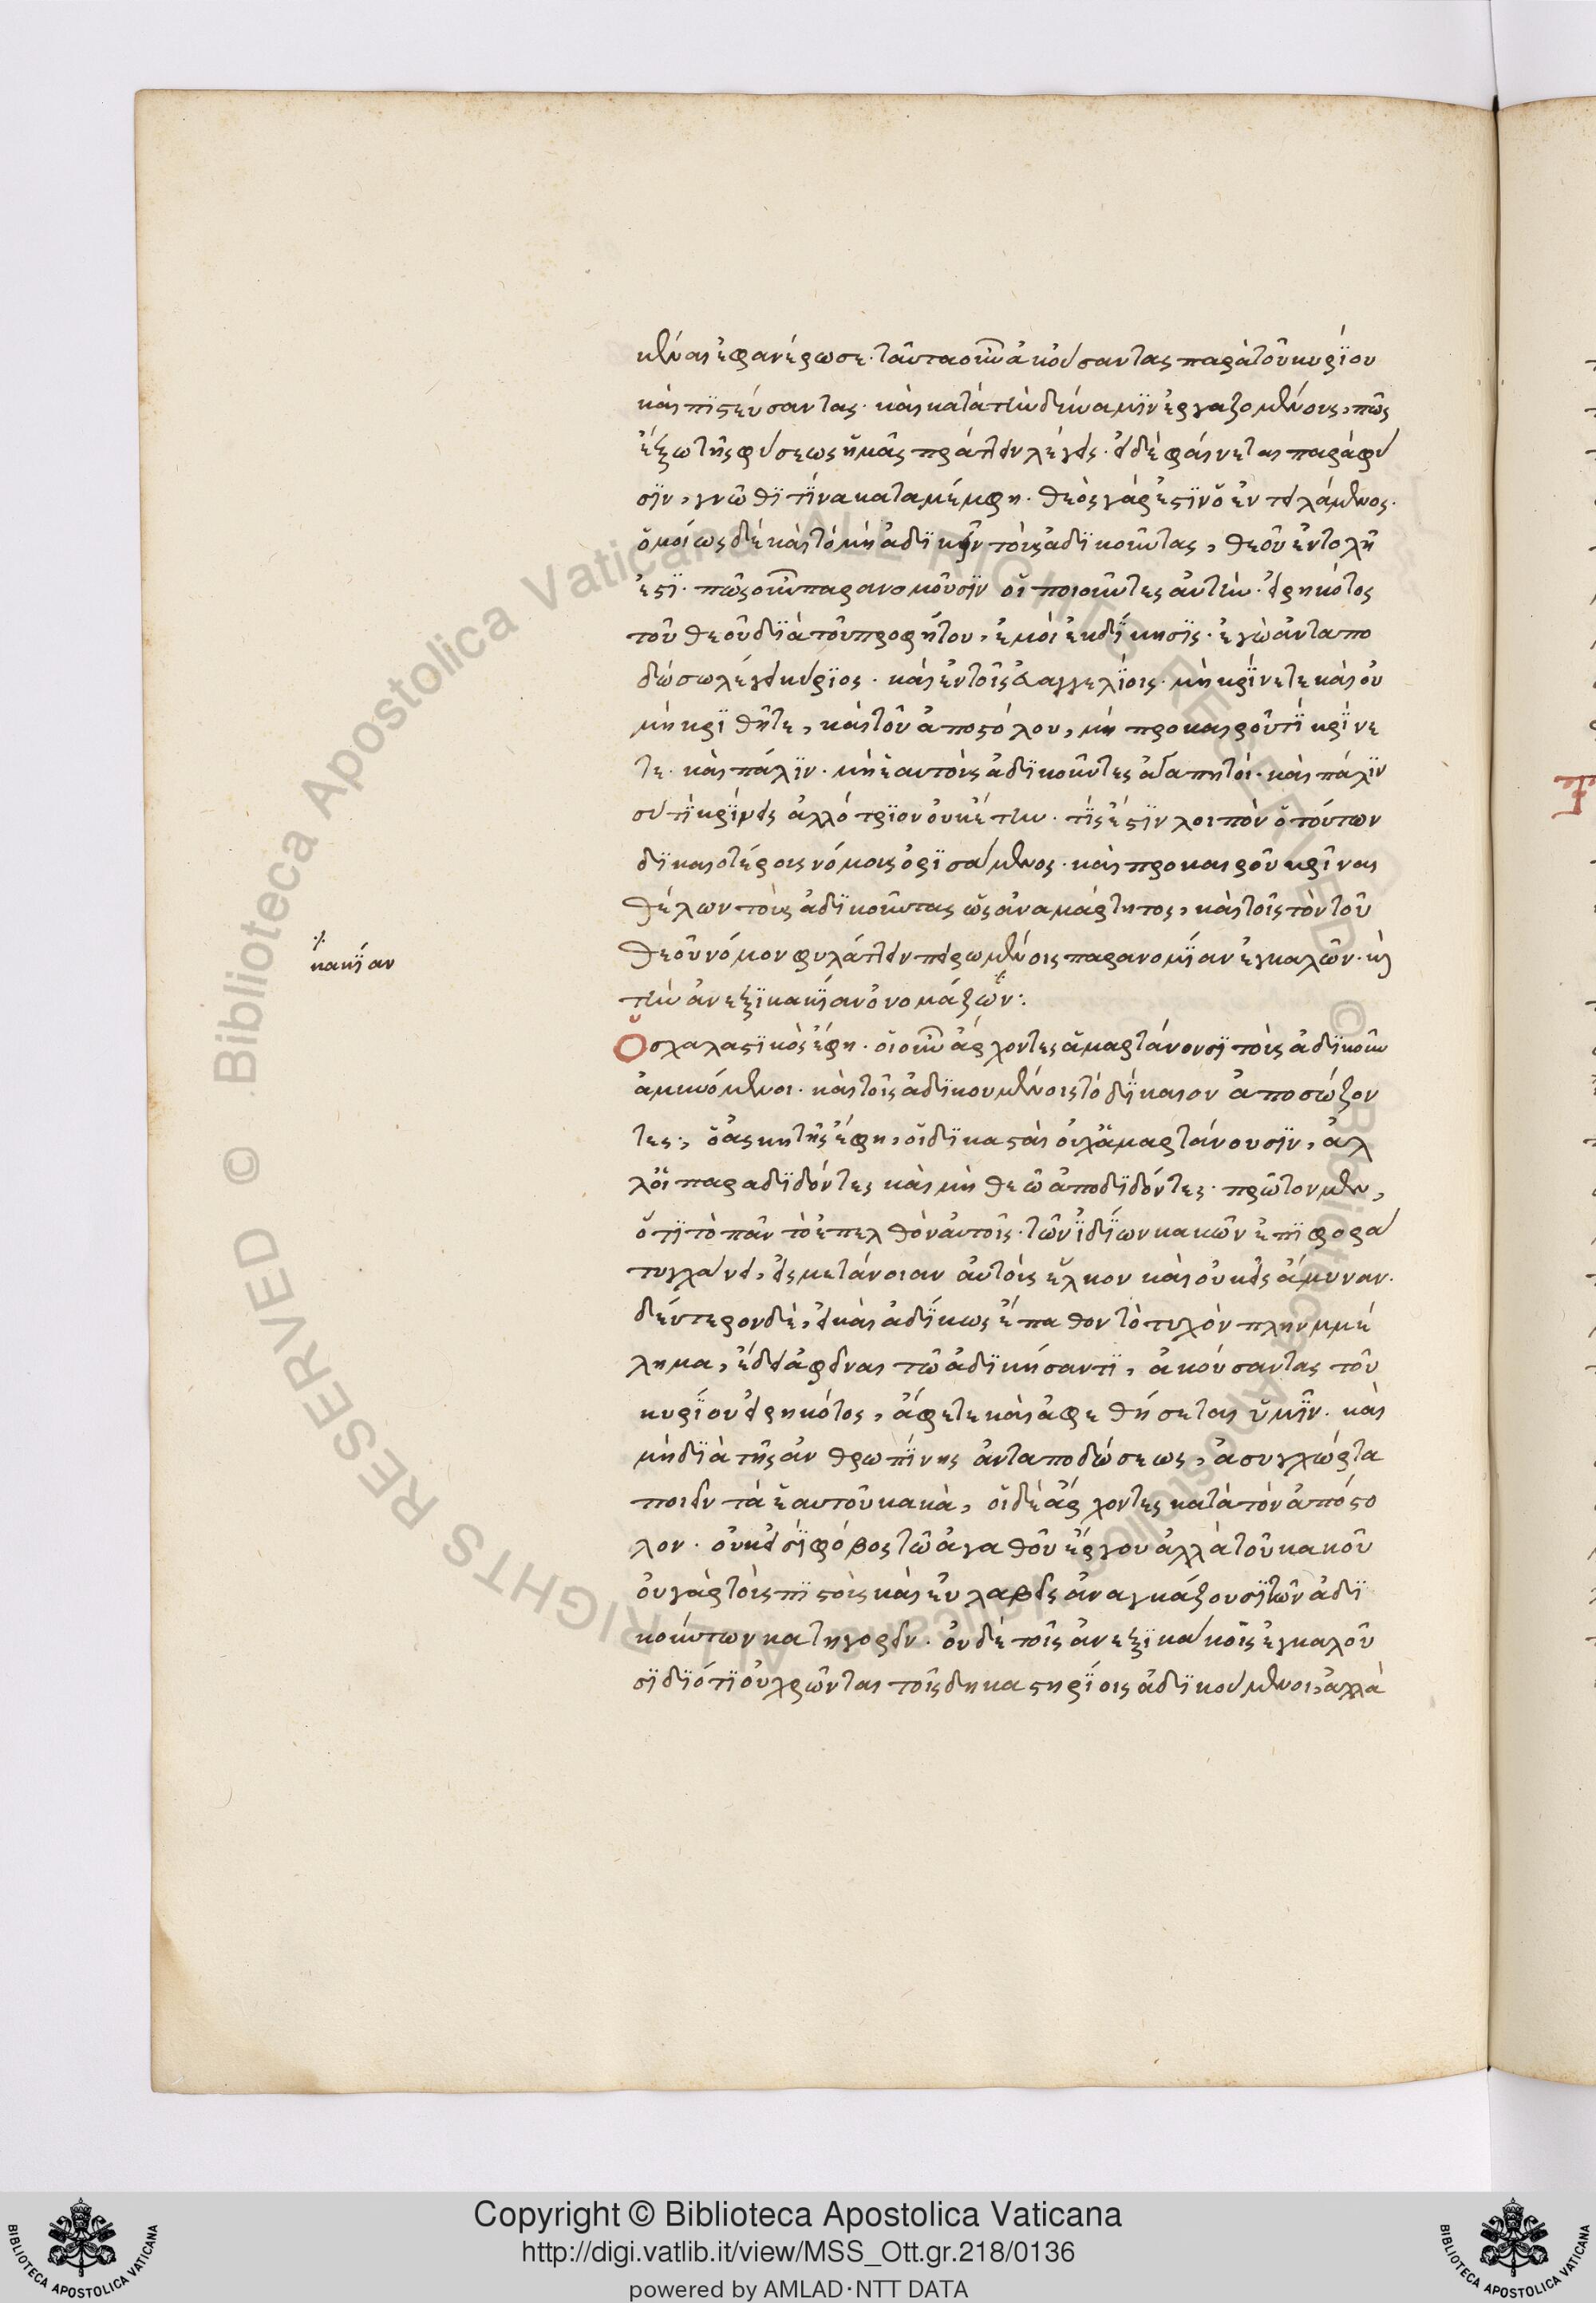 κῦναι ἐφανέρωσε· ταῦτα οὖν ἀκούσαντας παρὰ τοῦ κυρίου
καὶ πιστεύσαντας· καὶ κατὰ τὴν δύναμιν ἐργαζομένους, πῶς
ἔξω τῆς φύσεως ἡμᾶς πράττειν λέγεις· εἰ δὲ φαίνεται παρὰ φύ
σιν, γνῶθι τίνα καταμέμφη· θεὸς γάρ ἐστιν ὁ ἐντειλάμενος·
ὁμοίως δὲ καὶ τὸ μὴ ἀδικεῖν τοὺς ἀδικοῦντας, θεοῦ ἐντολή
ἐστι· πῶς οὖν παρανομοῦσιν οἱ ποιοῦντες αὐτήν· εἰρηκότος
τοῦ θεοῦ διὰ τοῦ προφήτου, ἐμοὶ ἐκδίκησις· ἐγὼ ἀνταπο
δώσω λέγει κύριος· καὶ ἐν τοῖς εὐαγγελίοις· μὴ κρίνετε καὶ οὐ
μὴ κριθῆτε, καὶ τοῦ ἀποστόλου, μὴ προ καιροῦ τι κρίνε
τε· καὶ πάλιν· μὴ ἑαυτοὺς ἀδικοῦντες ἀγαπητοί· καὶ πάλιν
σύ τι κρίνεις ἀλλότριον οἰκέτην· τίς ἐστιν λοιπὸν ὁ τούτων
δικαιοτέροις νόμοις ὁρισάμενος· καὶ προ καιροῦ κρῖναι
θέλων τοὺς ἀδικοῦντας ὡς ἀναμάρτητος, καὶ τοῖς τὸν τοῦ
θεοῦ νόμον φυλάττειν πειρωμένοις παρανομίαν ἐγκαλῶν· κὶ
τὴν ἀνεξικακίαν ὀνομάζων:
κακίαν
Ὁ σχολαστικὸς ἔφη· οἱ οὖν ἄρχοντες ἁμαρτάνουσι τοὺς ἀδικοῦν
ἀμυνόμενοι· καὶ τοῖς ἀδικουμένοις τὸ δίκαιον ἀποσώζον
τες; ὁ ἀσκητὴς ἔφη, οἱ δικασταὶ οὐχ ἁμαρτάνουσιν, ἀλ
λ' οἱ παραδιδόντες καὶ μὴ θεῷ ἀποδιδόντες· πρῶτον μὲν,
ὅτι τὸ πᾶν τὸ ἐπελθὸν αὐτοῖς· τῶν ἰδίων κακῶν ἐπιφορὰ
τυγχάνει, εἰς μετάνοιαν αὐτοὺς εἷλκον καὶ οὐκ εἰς ἄμυναν·
δεύτερον δὲ, εἰ καὶ ἀδίκως ἔπαθον τὸ τυχὸν πλημμέ
λημα, ἔδει ἀφεῖναι τῷ ἀδικήσαντι, ἀκούσαντας τοῦ
κυρίου εἰρηκότος, ἄφετε καὶ ἀφεθήσεται ὑμῖν· καὶ
μὴ διὰ τῆς ἀνθρωπίνης ἀνταποδώσεως, ἀσυγχώρητα
ποιεῖν τὰ ἑαυτοῦ κακὰ, οἱ δὲ ἄρχοντες κατὰ τὸν ἀπόστο
λον· οὐκ εἰσὶ φόβος τῷ ἀγαθοῦ ἔργου ἀλλὰ τοῦ κακοῦ
οὐ γὰρ τοὺς πιστοὺς καὶ εὐλαβεῖς ἀναγκάζουσι τῶν ἀδι
κούντων κατηγορεῖν· οὐδὲ τοῖς ἀνεξικάκοις ἐγκαλοῦ
σι διότι οὐ χρῶνται τοῖς δηκαστηρίοις ἀδικούμενοι, ἀλλὰ
Copyright © Biblioteca Apostolica Vaticana
http://digi.vatlib.it/view/MSS_Ott.gr.218/0136
powered by AMLAD·NTT DATA